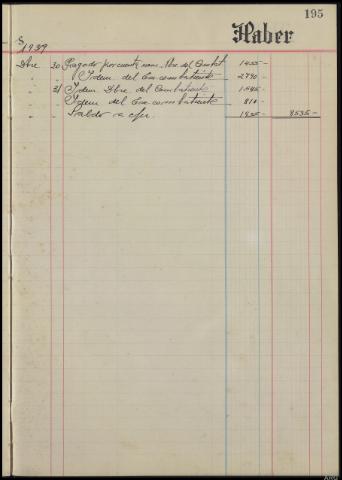 195
Haber
1939
Dbre 30 Pagado por cuenta nom. Nbre del Combat 1455-
" " Idem del Excombatiente 2790-
" 31 Idem Dbre del Combatiente
" Idem del Excombatiente 810-
" Saldo a 8535-